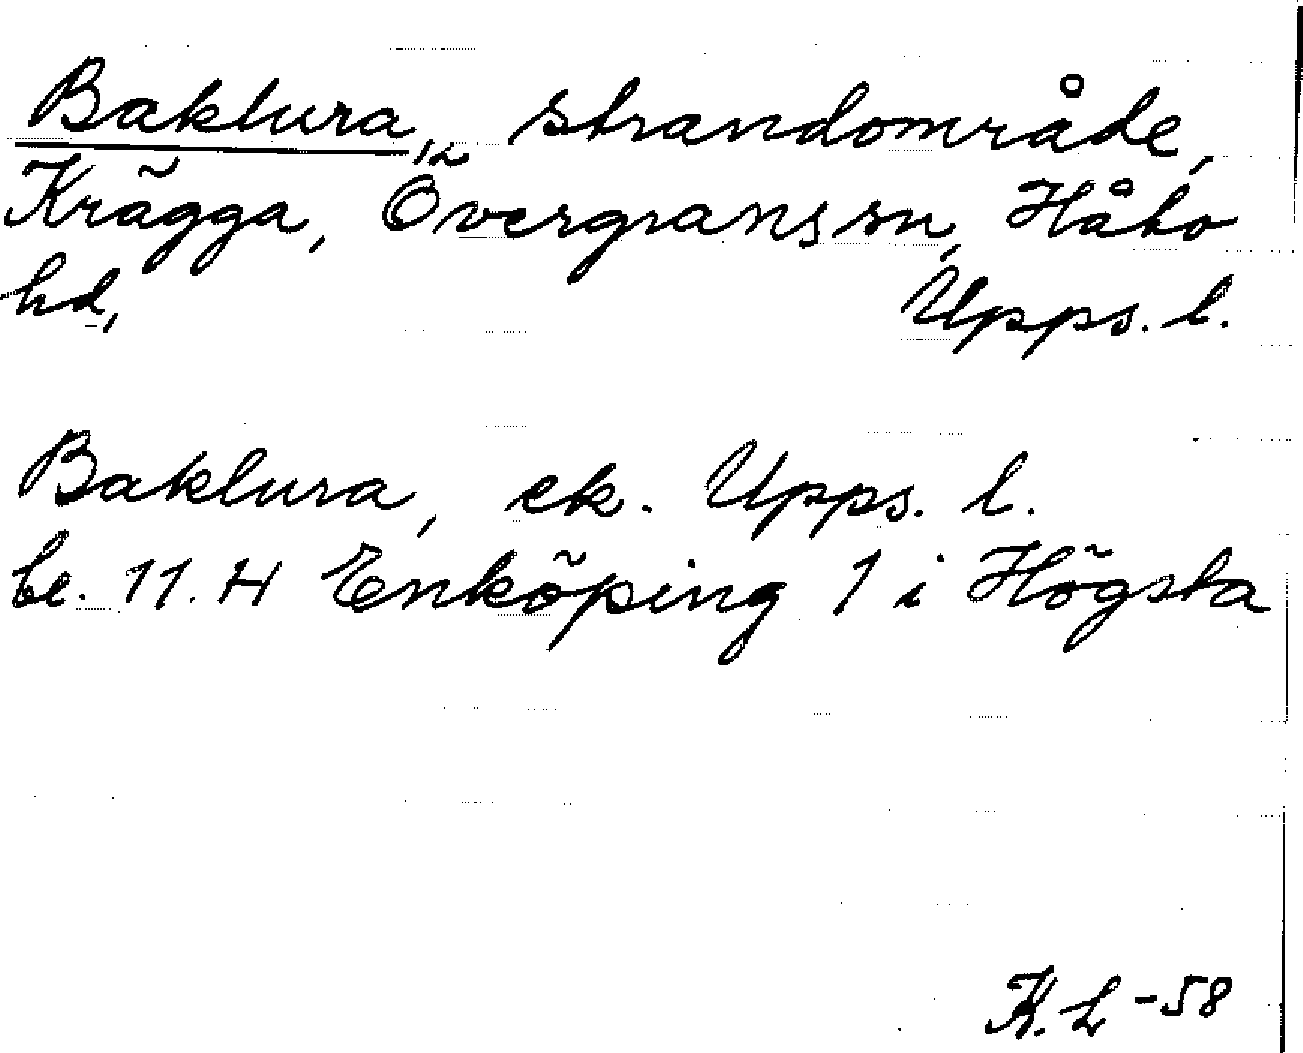 Baklura, strandområde,
Krägga, Övergransn sn, Håbo
hd, Upps. l.
Baklura, ek. Upps. l.
be. 11. H Enköping 1 i Högsta
K. L -58